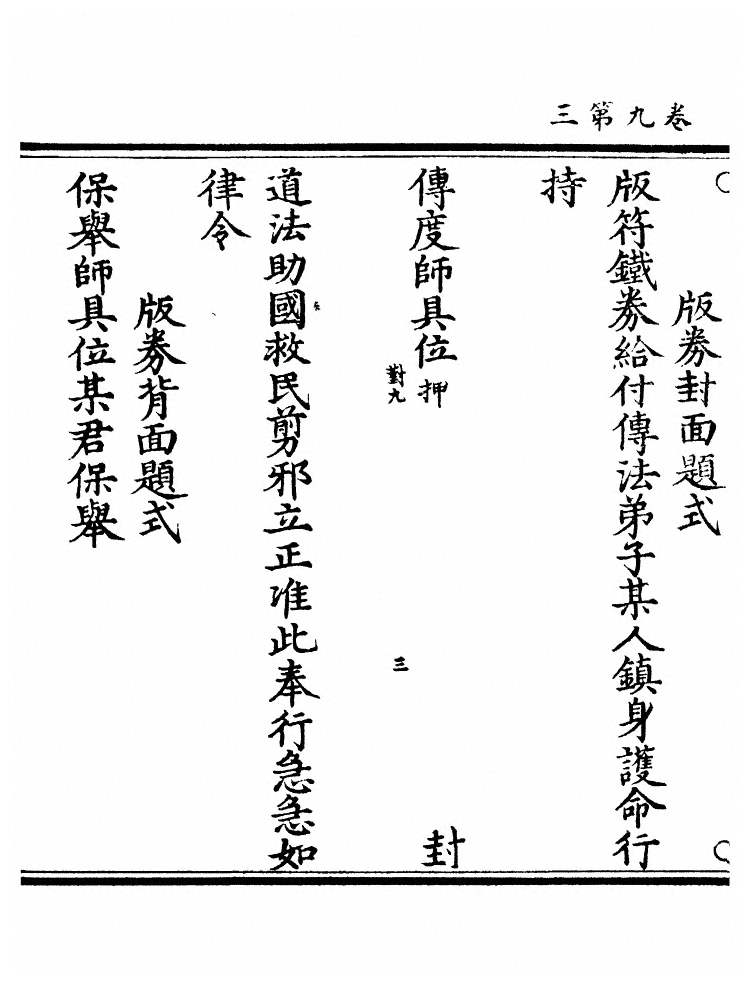 三第九卷
版券封面題式
版符鐵券給付傳法弟子某人鎮身護命行
持
傳度師具位押 封
對九
三
道法助國救民剪邪立正准此奉行急急如
律令
版券背面題式
保舉師具位某君保舉